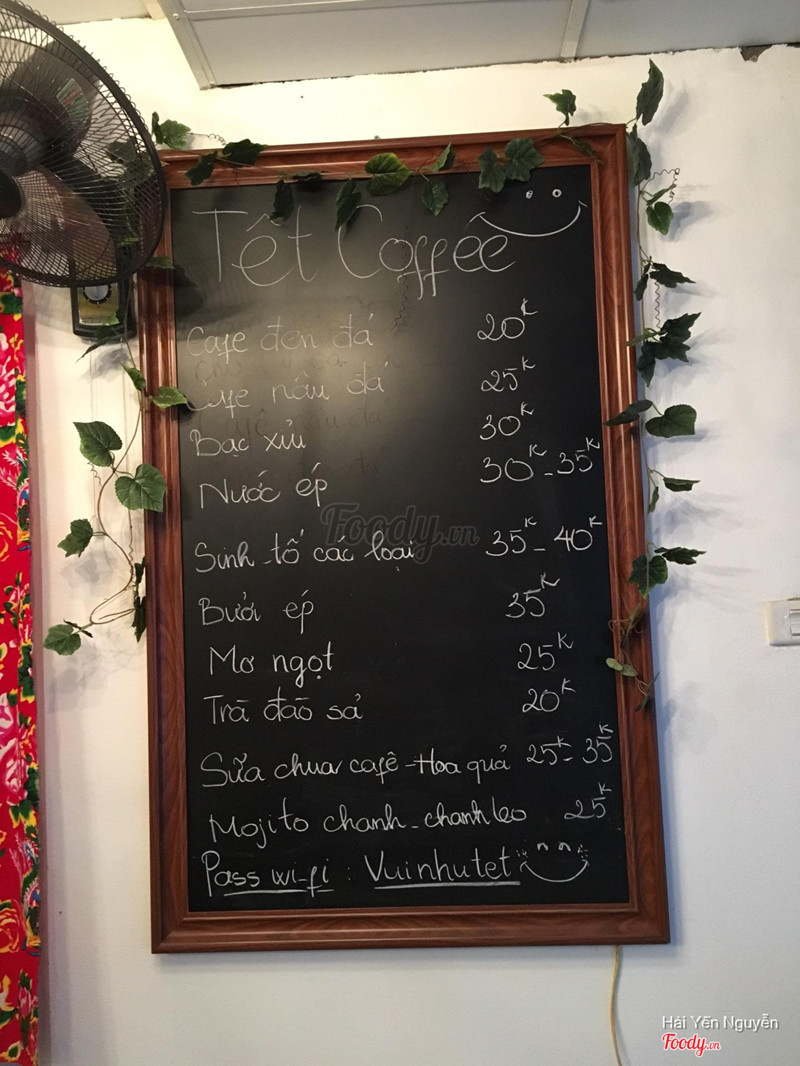 Tết Coffee
Cafe đen đá 20K
Cafe nâu đá 25K
Bạc xỉu 30K
Nước ép 30K - 35K
Foody.vn
Sinh tố các loại 35K - 40K
Bưởi ép 35K
Mơ ngọt 25K
Trà đào sả 20K
Sữa chua cafê - Hoa quả 25K - 35K
Mojito chanh - chanh leo 25K
Pass wi-fi : Vuinhutet
Hải Yến Nguyễn
Foody.vn